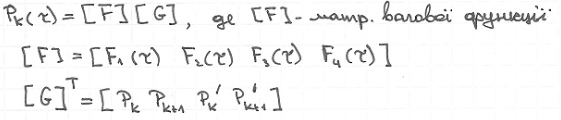 Pk(τ) = [F][G], де [F]-матр. вагової функції
[F] = [F1(τ) F2(τ) F3(τ) F4(τ)]
[G]^T = [Pk Pk+1 Pk' P'k+1]